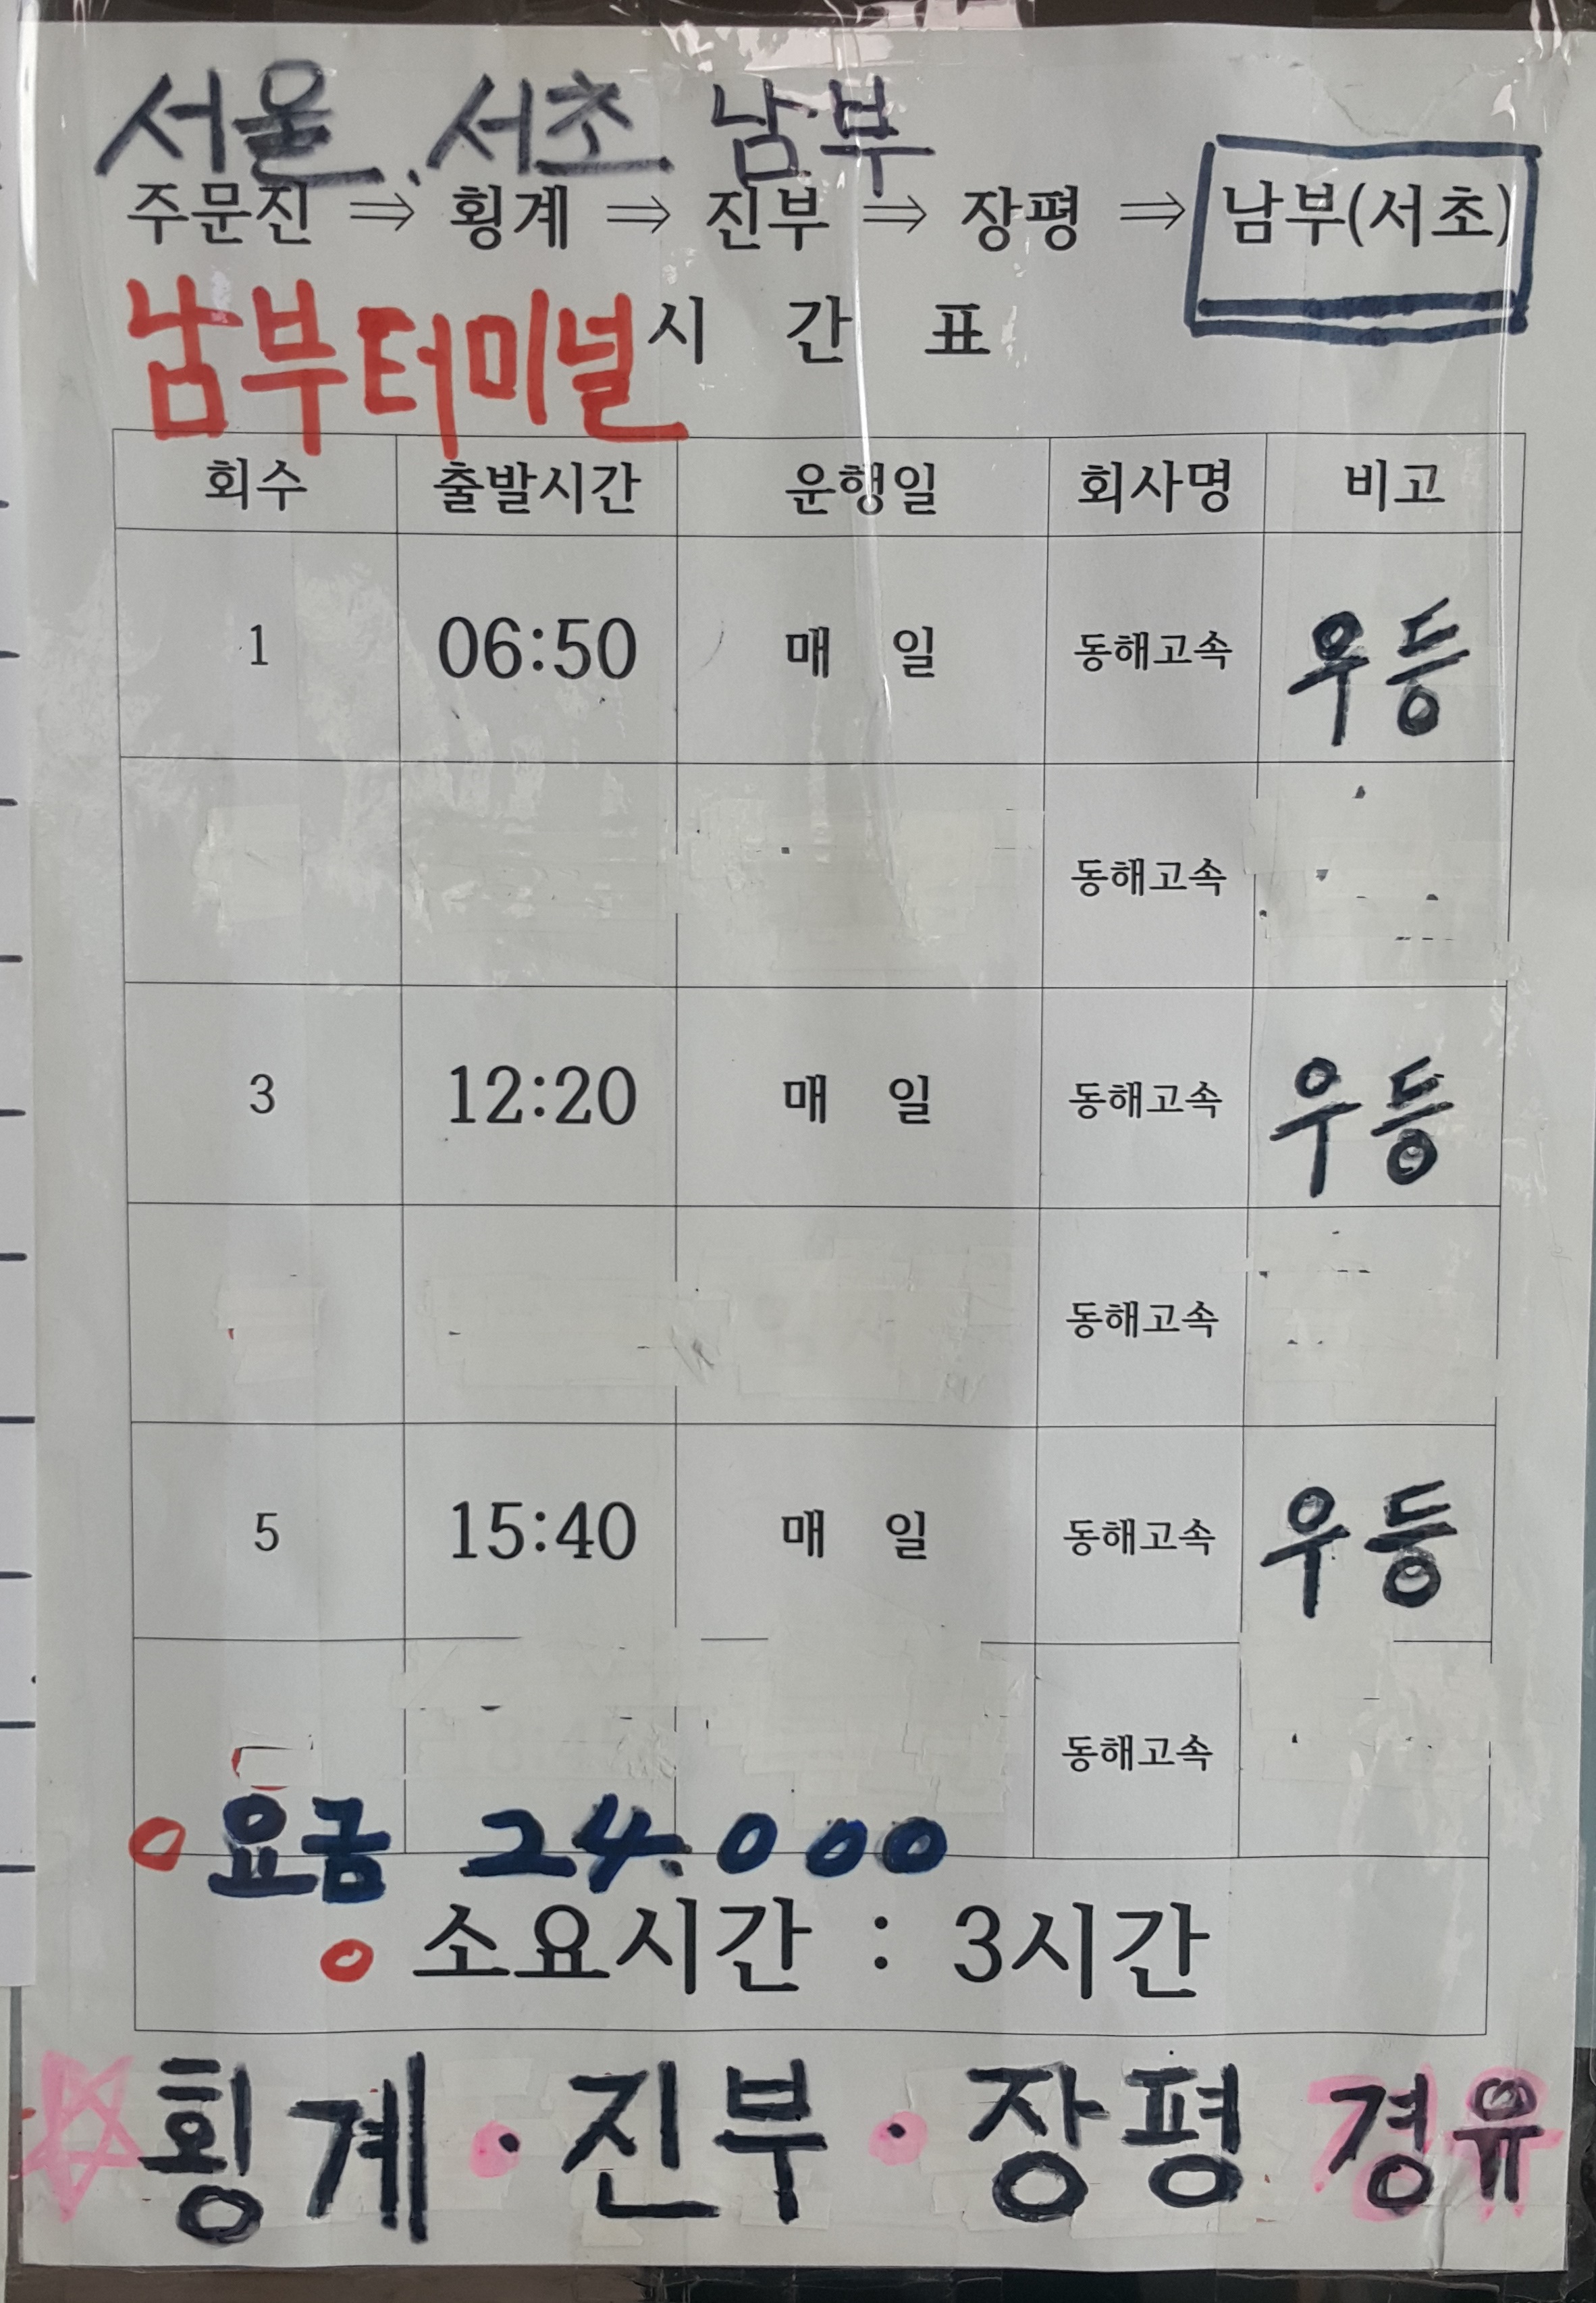 서울. 서초 남부
주문진 ⇒ 횡계 ⇒ 진부 ⇒ 장평 ⇒ 남부(서초)
남부터미널 시 간 표
회수 출발시간 운행일 회사명 비고
1 06:50 매 일 동해고속 우등
동해고속
3 12:20 매 일 동해고속 우등
동해고속
5 15:40 매 일 동해고속 우등
동해고속
요금 24.000
소요시간 : 3시간
횡계 · 진부 · 장평 경유